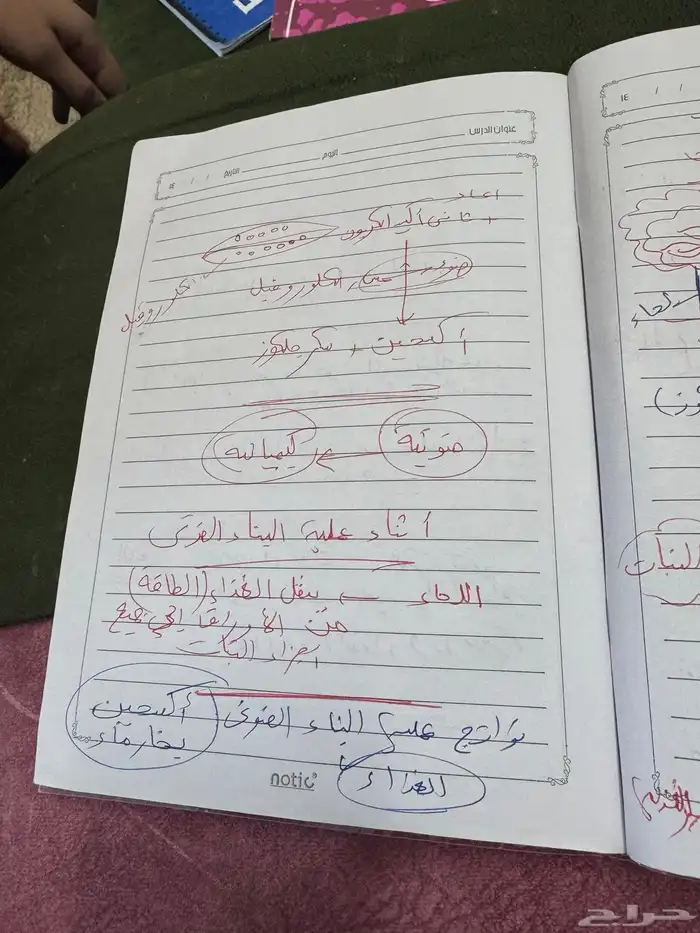 عنوان الدرس
اليوم
التاريخ / / ١٤
الماء
+ ثاني أكسيد الكربون
ضوء شمس، الكلوروفيل
كلوروفيل
أكسجين + سكر جلكوز
ضوئية ← كيميائية
أثناء عملية البناء الضوئي
اللحاء ← ينقل الغذاء (الطاقة)
من الأوراق إلى جميع
أجزاء النبات
نواتج عملية البناء الضوئي
أكسجين
بخار ماء
الغذاء
notic
/ / ١٤
اللحاء
النبات
حراج